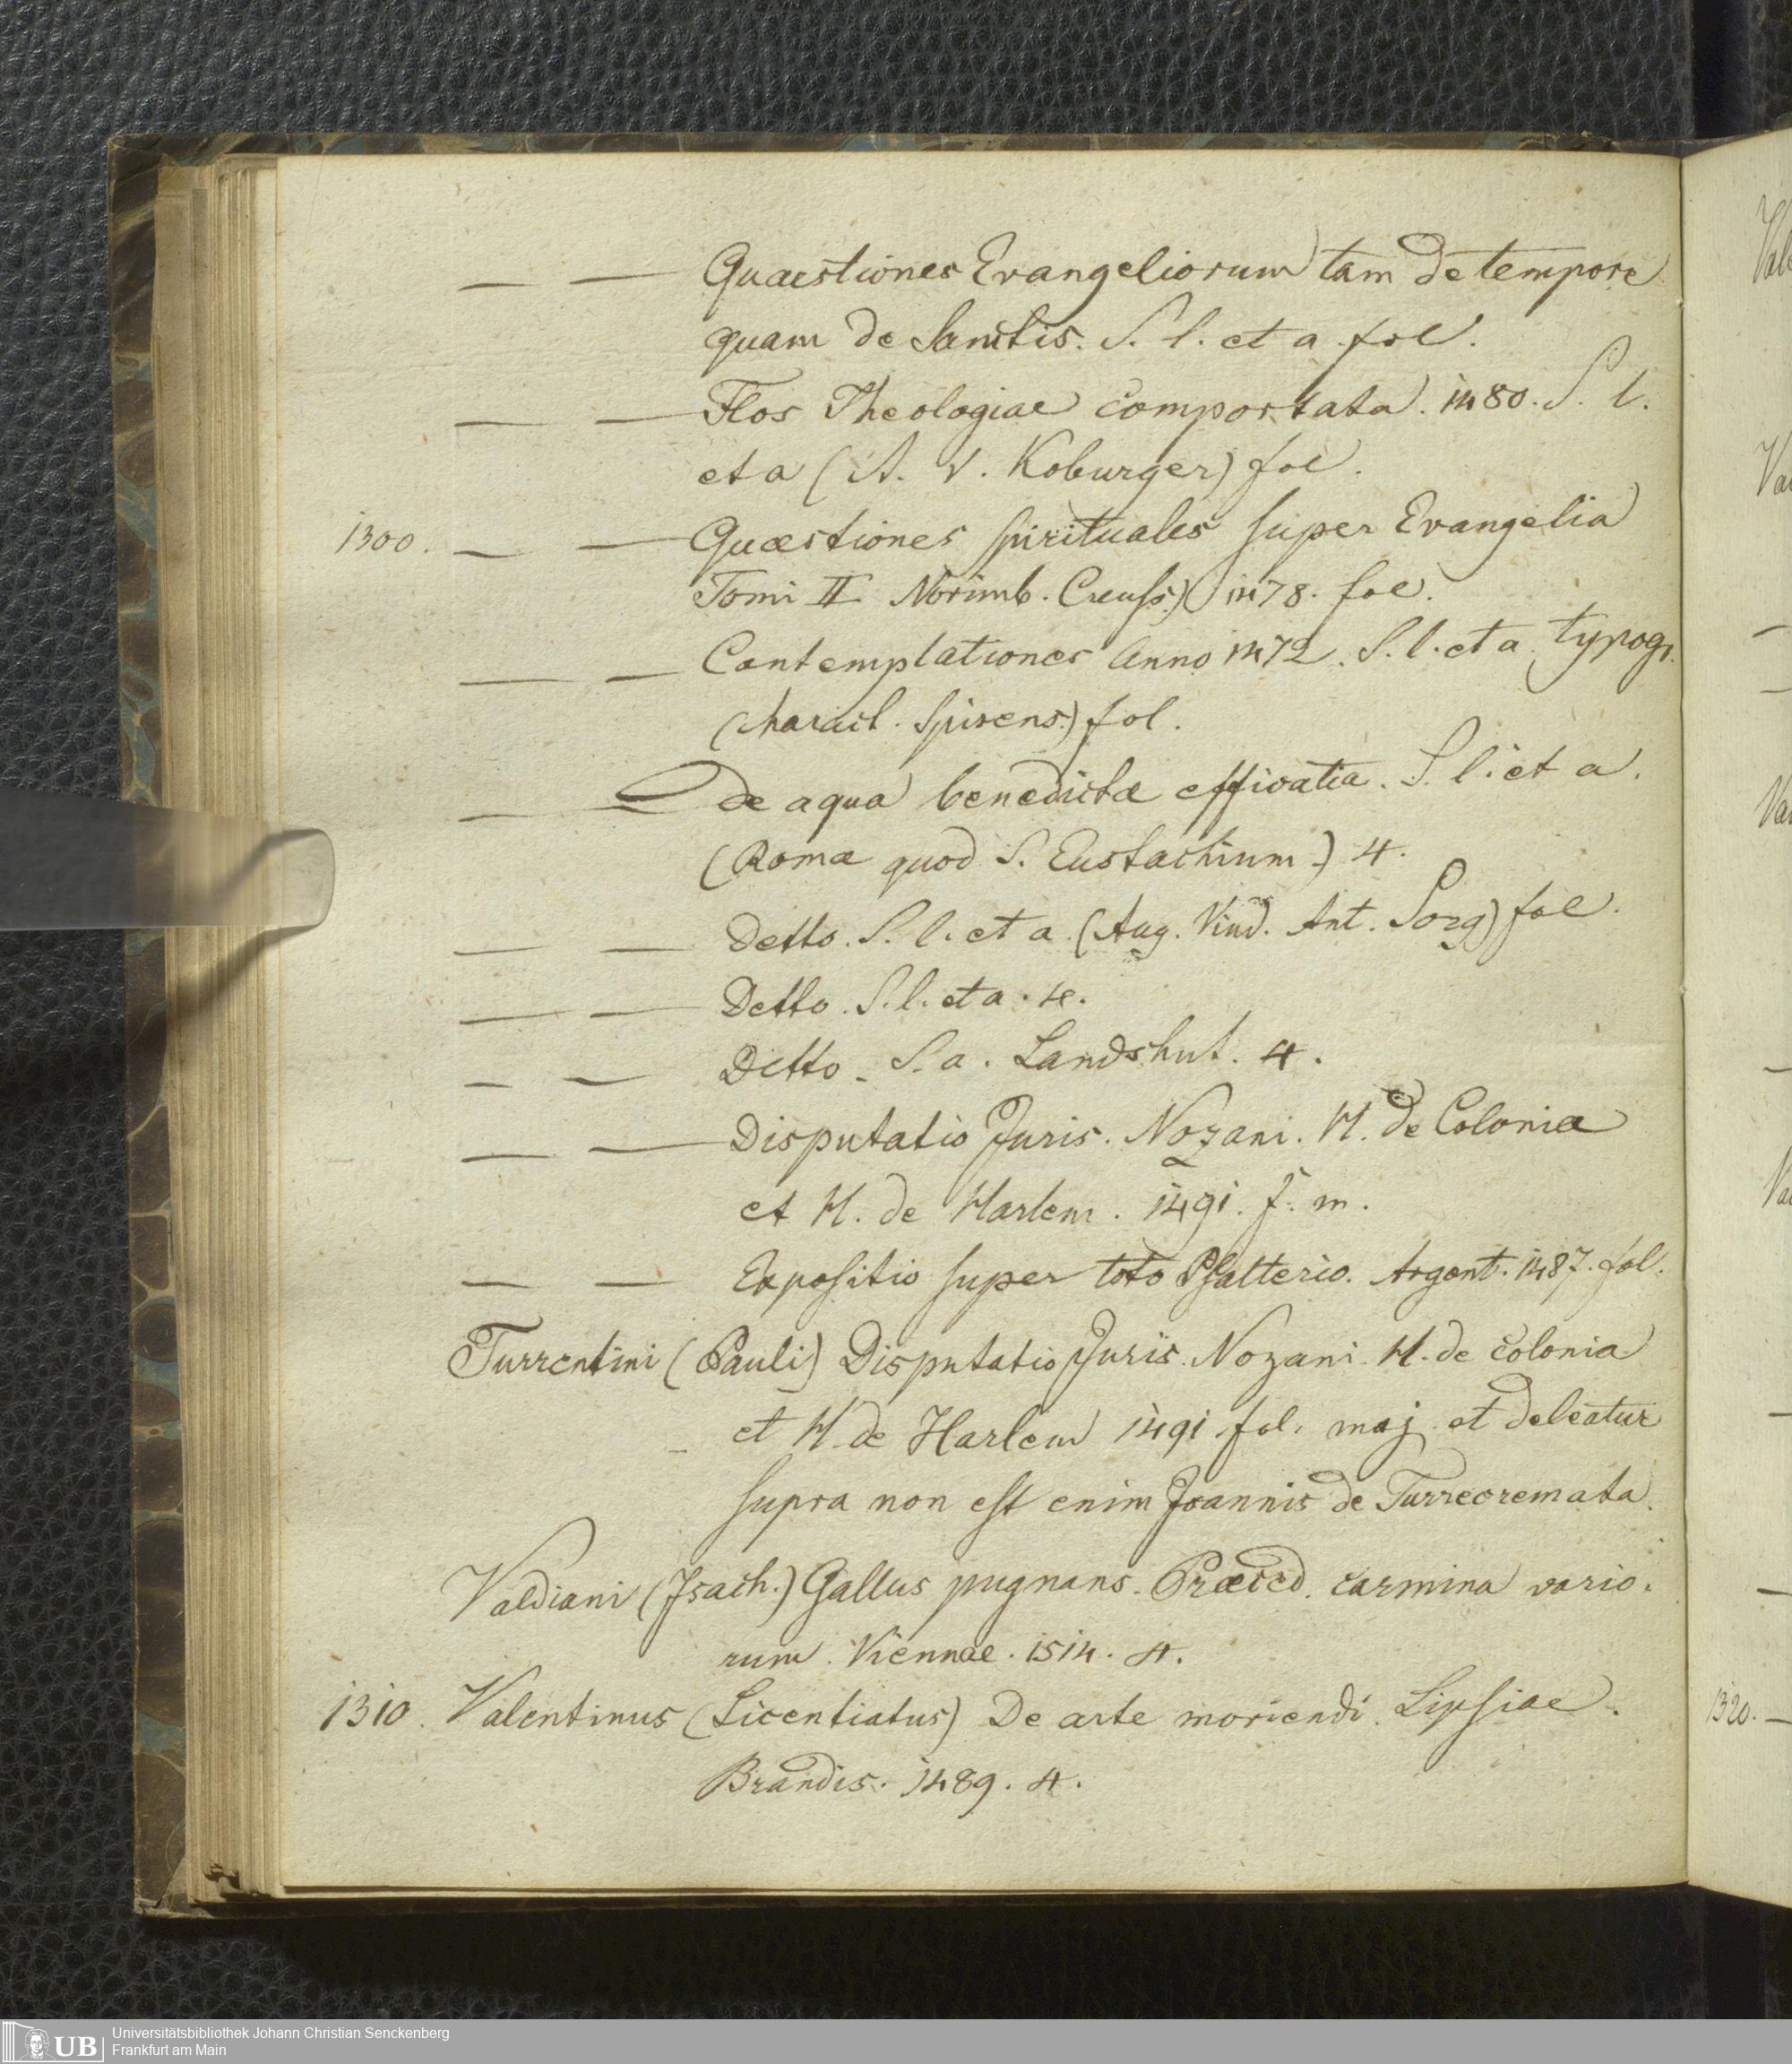 — — Quaestiones Evangeliorum tam de tempore
quam de Sanctis. S. l. et a. fol.
— — Flos Theologiae comportata. 1480. S. l.
et a (A. V. Koburger) fol.
1300. — — Quæstiones spirituales super Evangelia
Tomi II Norimb. Creuss.) 1478. fol.
— — Contemplationes Anno 1472. S. l. et a. typogr.
(charact. Spirens.) fol.
— — de aqua benedictæ efficatia. S. l. et a.
(Romæ quod S. Eustachium.) 4.
— — Detto. S. l. et a. (Aug. Vind. Ant. Sorg) fol.
— — Detto. S. l. et a. 4.
— — Detto. S. a. Landshut. 4.
— — Disputatio Juris. Nozani. H. de Colonia
et H. de Harlem. 1491. f. m.
— — Expositio super toto Psalterio. Argent. 1487. fol.
Turrentini (Pauli) Disputatio Juris. Nozani. H. de Colonia
et H. de Harlem 1491 fol. maj. et deleatur
supra non est enim Joannis de Turrecremata.
Valdiani (Isach.) Gallus pugnans. Præced. carmina vario-
rum. Viennae. 1514. 4.
1310. Valentinus (Licentiatus) De arte moriendi. Lipsiae.
Brandis. 1489. 4.
1320. —
UB
Universitätsbibliothek Johann Christian Senckenberg
Frankfurt am Main